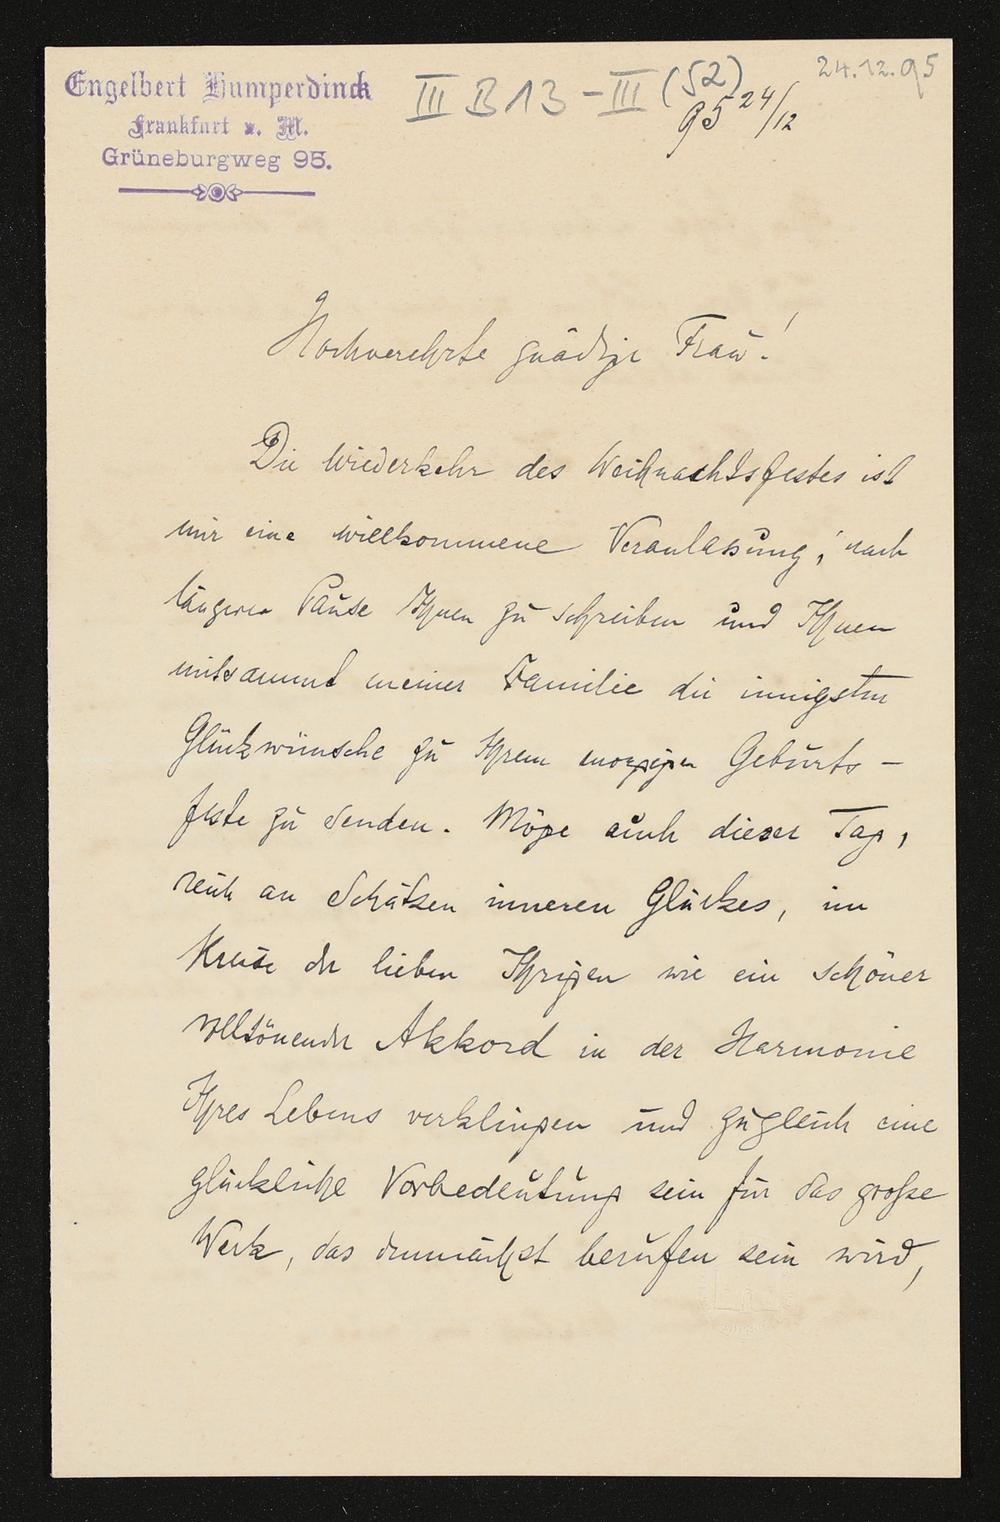 Engelbert Humperdinck
Frankfurt a. M.
Grüneburgweg 95.
III B 13 - III (52)
95 24/12
24.12.95
Hochverehrte gnädige Frau!
Die Wiederkehr des Weihnachtsfestes ist
mir eine willkommene Veranlassung, nach
längerer Pause Ihnen zu schreiben und Ihnen
mitsammt meiner Familie die innigsten
Glückwünsche zu Ihrem morgigen Geburts-
feste zu senden. Möge auch dieser Tag,
reich an Schätzen inneren Glückes, im
Kreise der lieben Ihrigen wie ein schöner
volltönender Akkord in der Harmonie
Ihres Lebens verklingen und zugleich eine
glückliche Vorbedeutung sein für das große
Werk, das demnächst berufen sein wird,